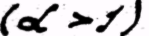 (α > 1)